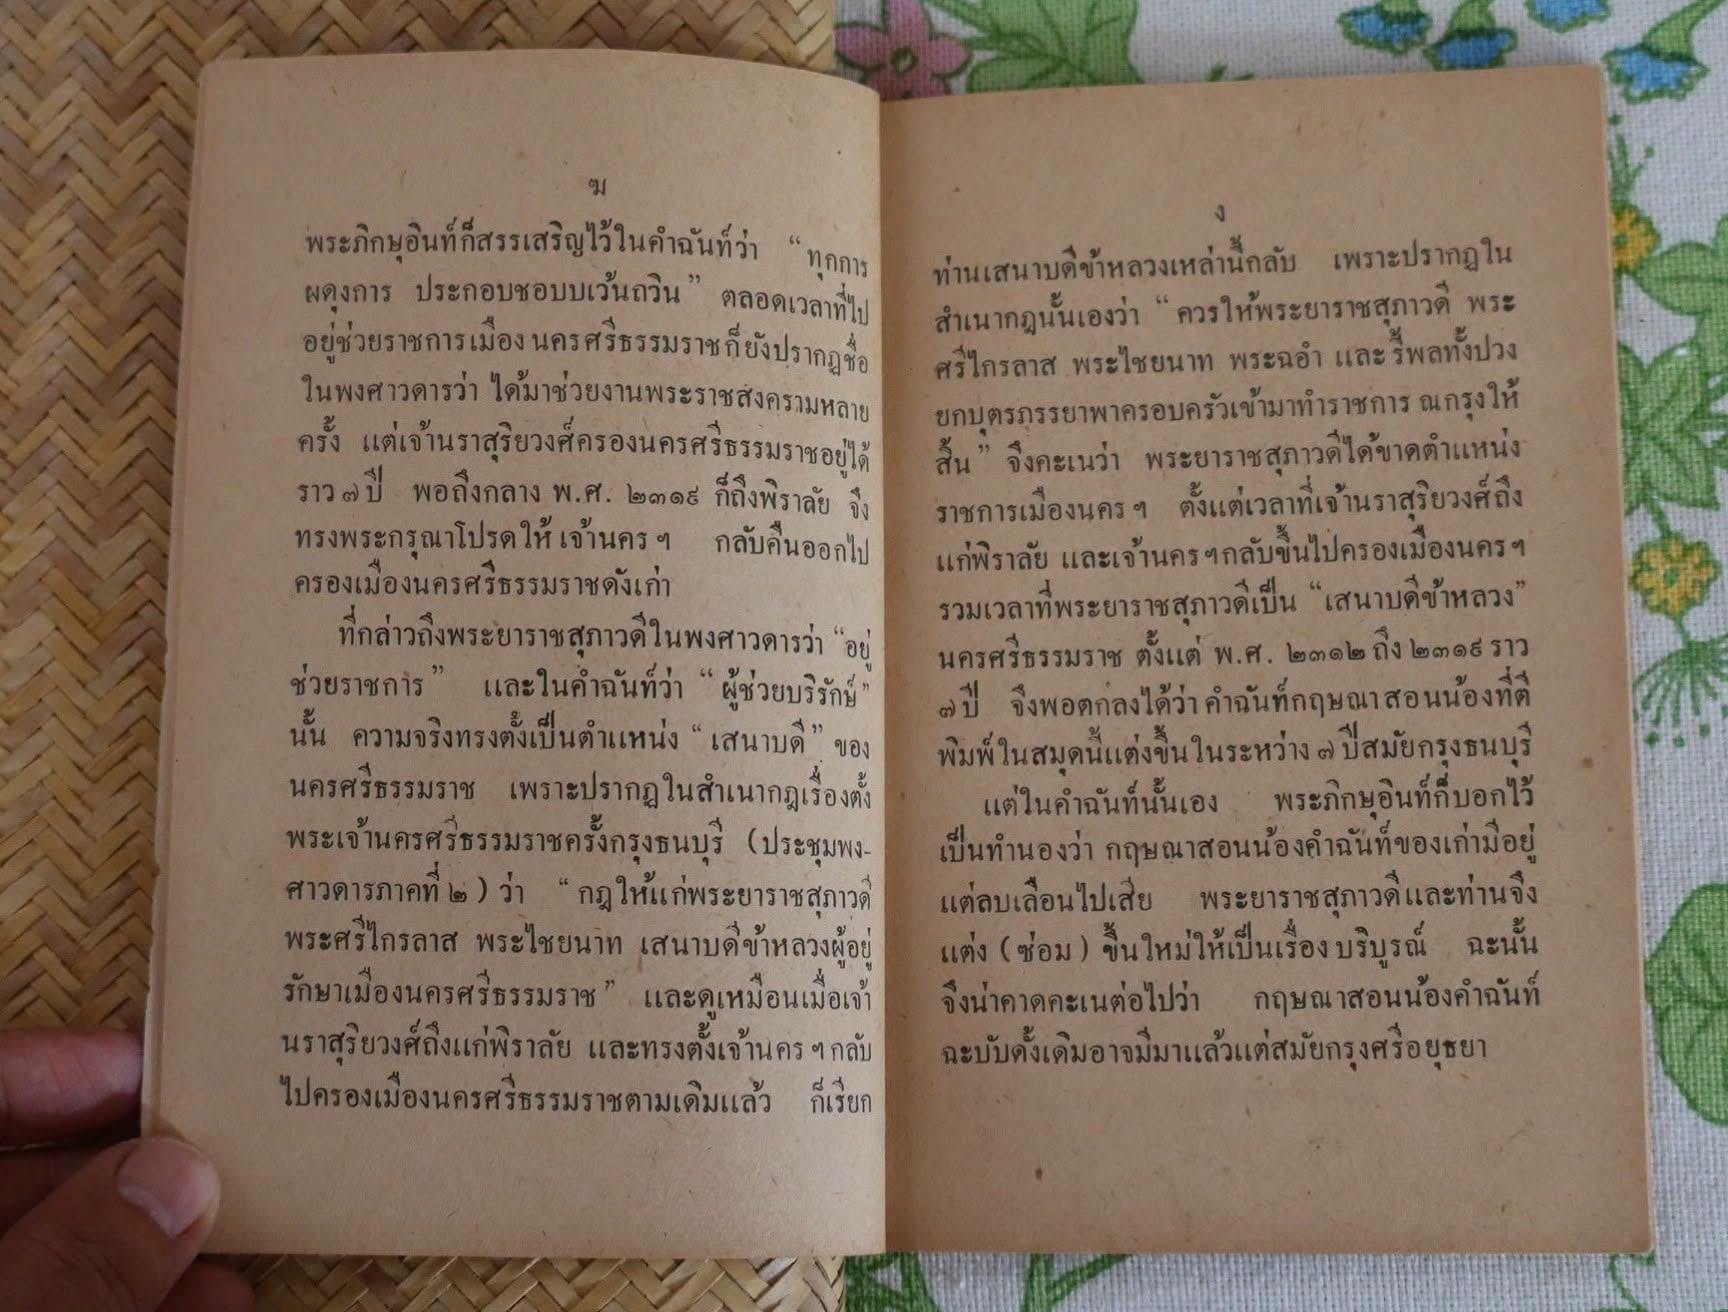 ฆ
พระภิกษุอินท์ก็สรรเสริญไว้ในคำฉันท์ว่า “ทุกการ
ผดุงการ ประกอบชอบบเว้นถวิน” ตลอดเวลาที่ไป
อยู่ช่วยราชการเมืองนครศรีธรรมราชก็ยังปรากฏชื่อ
ในพงศาวดารว่า ได้มาช่วยงานพระราชสงครามหลาย
ครั้ง แต่เจ้านราสุริยวงศ์ครองนครศรีธรรมราชอยู่ได้
ราว ๗ ปี พอถึงกลาง พ.ศ. ๒๓๑๙ ก็ถึงพิราลัย จึง
ทรงพระกรุณาโปรดให้ เจ้านคร ฯ กลับคืนออกไป
ครองเมืองนครศรีธรรมราชดังเก่า
ที่กล่าวถึงพระยาราชสุภาวดีในพงศาวดารว่า “อยู่
ช่วยราชการ” และในคำฉันท์ว่า “ผู้ช่วยบริรักษ์”
นั้น ความจริงทรงตั้งเป็นตำแหน่ง “เสนาบดี” ของ
นครศรีธรรมราช เพราะปรากฏในสำเนากฎเรื่องตั้ง
พระเจ้านครศรีธรรมราชครั้งกรุงธนบุรี (ประชุมพง-
ศาวดารภาคที่ ๒) ว่า “กฎให้แก่พระยาราชสุภาวดี
พระศรีไกรลาส พระไชยนาท เสนาบดีข้าหลวงผู้อยู่
รักษาเมืองนครศรีธรรมราช” และดูเหมือนเมื่อเจ้า
นราสุริยวงศ์ถึงแก่พิราลัย และทรงตั้งเจ้านคร ฯ กลับ
ไปครองเมืองนครศรีธรรมราชตามเดิมแล้ว ก็เรียก
ง
ท่านเสนาบดีข้าหลวงเหล่านี้กลับ เพราะปรากฏใน
สำเนากฎนั้นเองว่า “ควรให้พระยาราชสุภาวดี พระ
ศรีไกรลาส พระไชยนาท พระฉอำ และรี้พลทั้งปวง
ยกบุตรภรรยาพาครอบครัวเข้ามาทำราชการ ณกรุงให้
สิ้น” จึงคะเนว่า พระยาราชสุภาวดีได้ขาดตำแหน่ง
ราชการเมืองนคร ฯ ตั้งแต่เวลาที่เจ้านราสุริยวงศ์ถึง
แก่พิราลัย และเจ้านคร ฯ กลับขึ้นไปครองเมืองนคร ฯ
รวมเวลาที่พระยาราชสุภาวดีเป็น “เสนาบดีข้าหลวง”
นครศรีธรรมราช ตั้งแต่ พ.ศ. ๒๓๑๒ ถึง ๒๓๑๙ ราว
๗ ปี จึงพอตกลงได้ว่า คำฉันท์กฤษณาสอนน้องที่ตี
พิมพ์ในสมุดนี้แต่งขึ้นในระหว่าง ๗ ปีสมัยกรุงธนบุรี
แต่ในคำฉันท์นั้นเอง พระภิกษุอินท์ก็บอกไว้
เป็นทำนองว่า กฤษณาสอนน้องคำฉันท์ของเก่ามีอยู่
แต่ลบเลือนไปเสีย พระยาราชสุภาวดีและท่านจึง
แต่ง (ซ่อม) ขึ้นใหม่ให้เป็นเรื่องบริบูรณ์ ฉะนั้น
จึงน่าคาดคะเนต่อไปว่า กฤษณาสอนน้องคำฉันท์
ฉะบับดั้งเดิมอาจมีมาแล้วแต่สมัยกรุงศรีอยุธยา